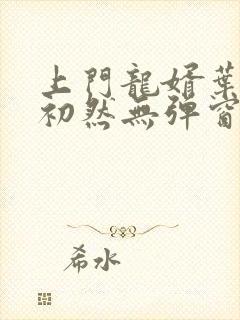 上門龍婿葉
初然無彈窗
希水